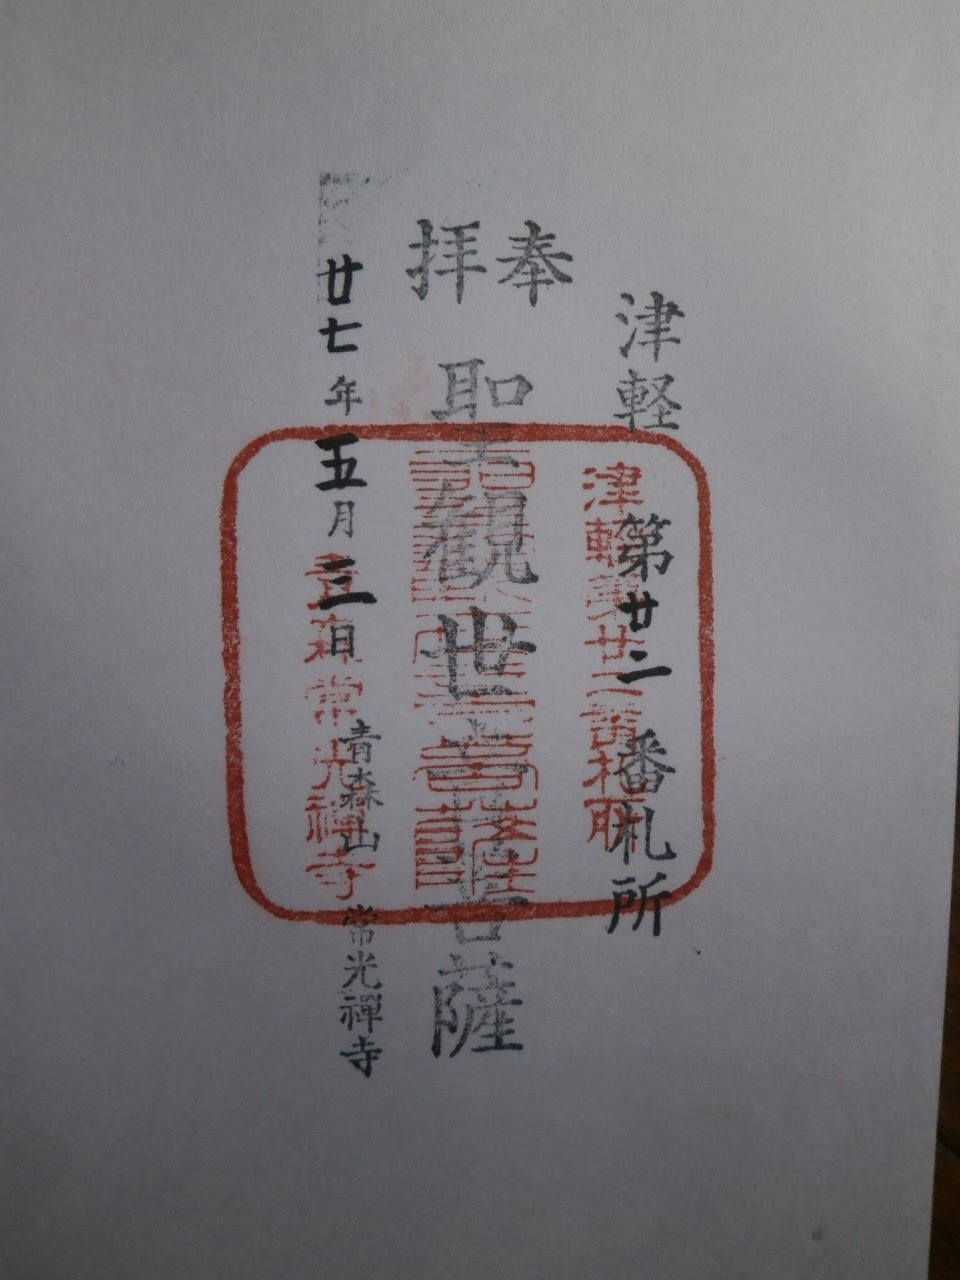 津軽第廿二番札所
奉拝
聖観世音菩薩
廿七年五月三日
青森山常光禪寺
津軽第廿二番札所
青森常光禅寺